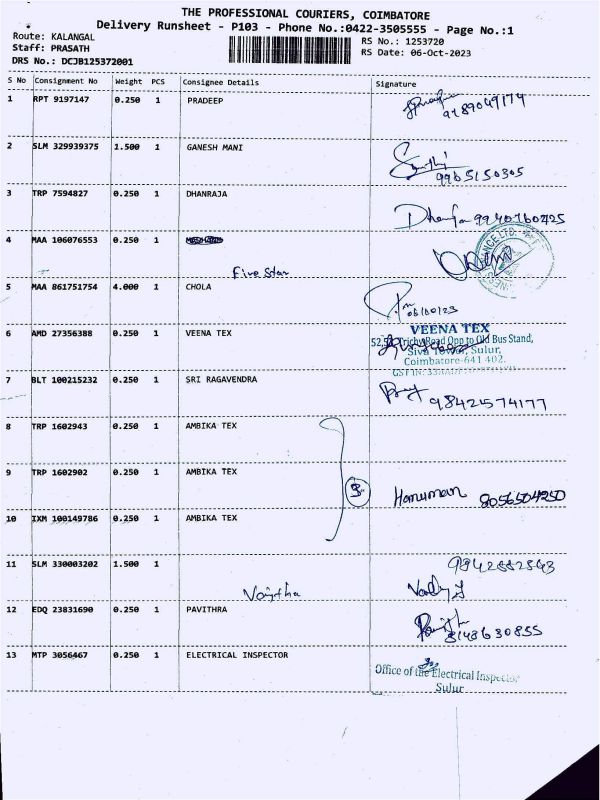 THE PROFESSIONAL COURIERS, COIMBATORE
Delivery Runsheet - P103 - Phone No.:0422-3505555 - Page No.:1
Route: KALANGAL RS No.: 1253720
Staff: PRASATH RS Date: 06-Oct-2023
DRS No.: DCJB125372001
S No Consignment No Weight PCS Consignee Details Signature
1 RPT 9197147 0.250 1 PRADEEP
9789049174
2 SLM 329939375 1.500 1 GANESH MANI
9965150305
3 TRP 7594827 0.250 1 DHANRAJA
4 MAA 106076553 0.250 1
Five Star
5 MAA 861751754 4.000 1 CHOLA
06/10/23
6 AMD 27356388 0.250 1 VEENA TEX
VEENA TEX
Trichy Road Opp to Old Bus Stand,
Siva Tower, Sulur,
Coimbatore-641 402.
7 BLT 100215232 0.250 1 SRI RAGAVENDRA
98421574177
8 TRP 1602943 0.250 1 AMBIKA TEX
9 TRP 1602902 0.250 1 AMBIKA TEX
Hanuman 8056504250
10 IXM 100149786 0.250 1 AMBIKA TEX
11 SLM 330003202 1.500 1
12 EDQ 23831690 0.250 1 PAVITHRA
8148630855
13 MTP 3056467 0.250 1 ELECTRICAL INSPECTOR
Office of the Electrical Inspector
Sulur